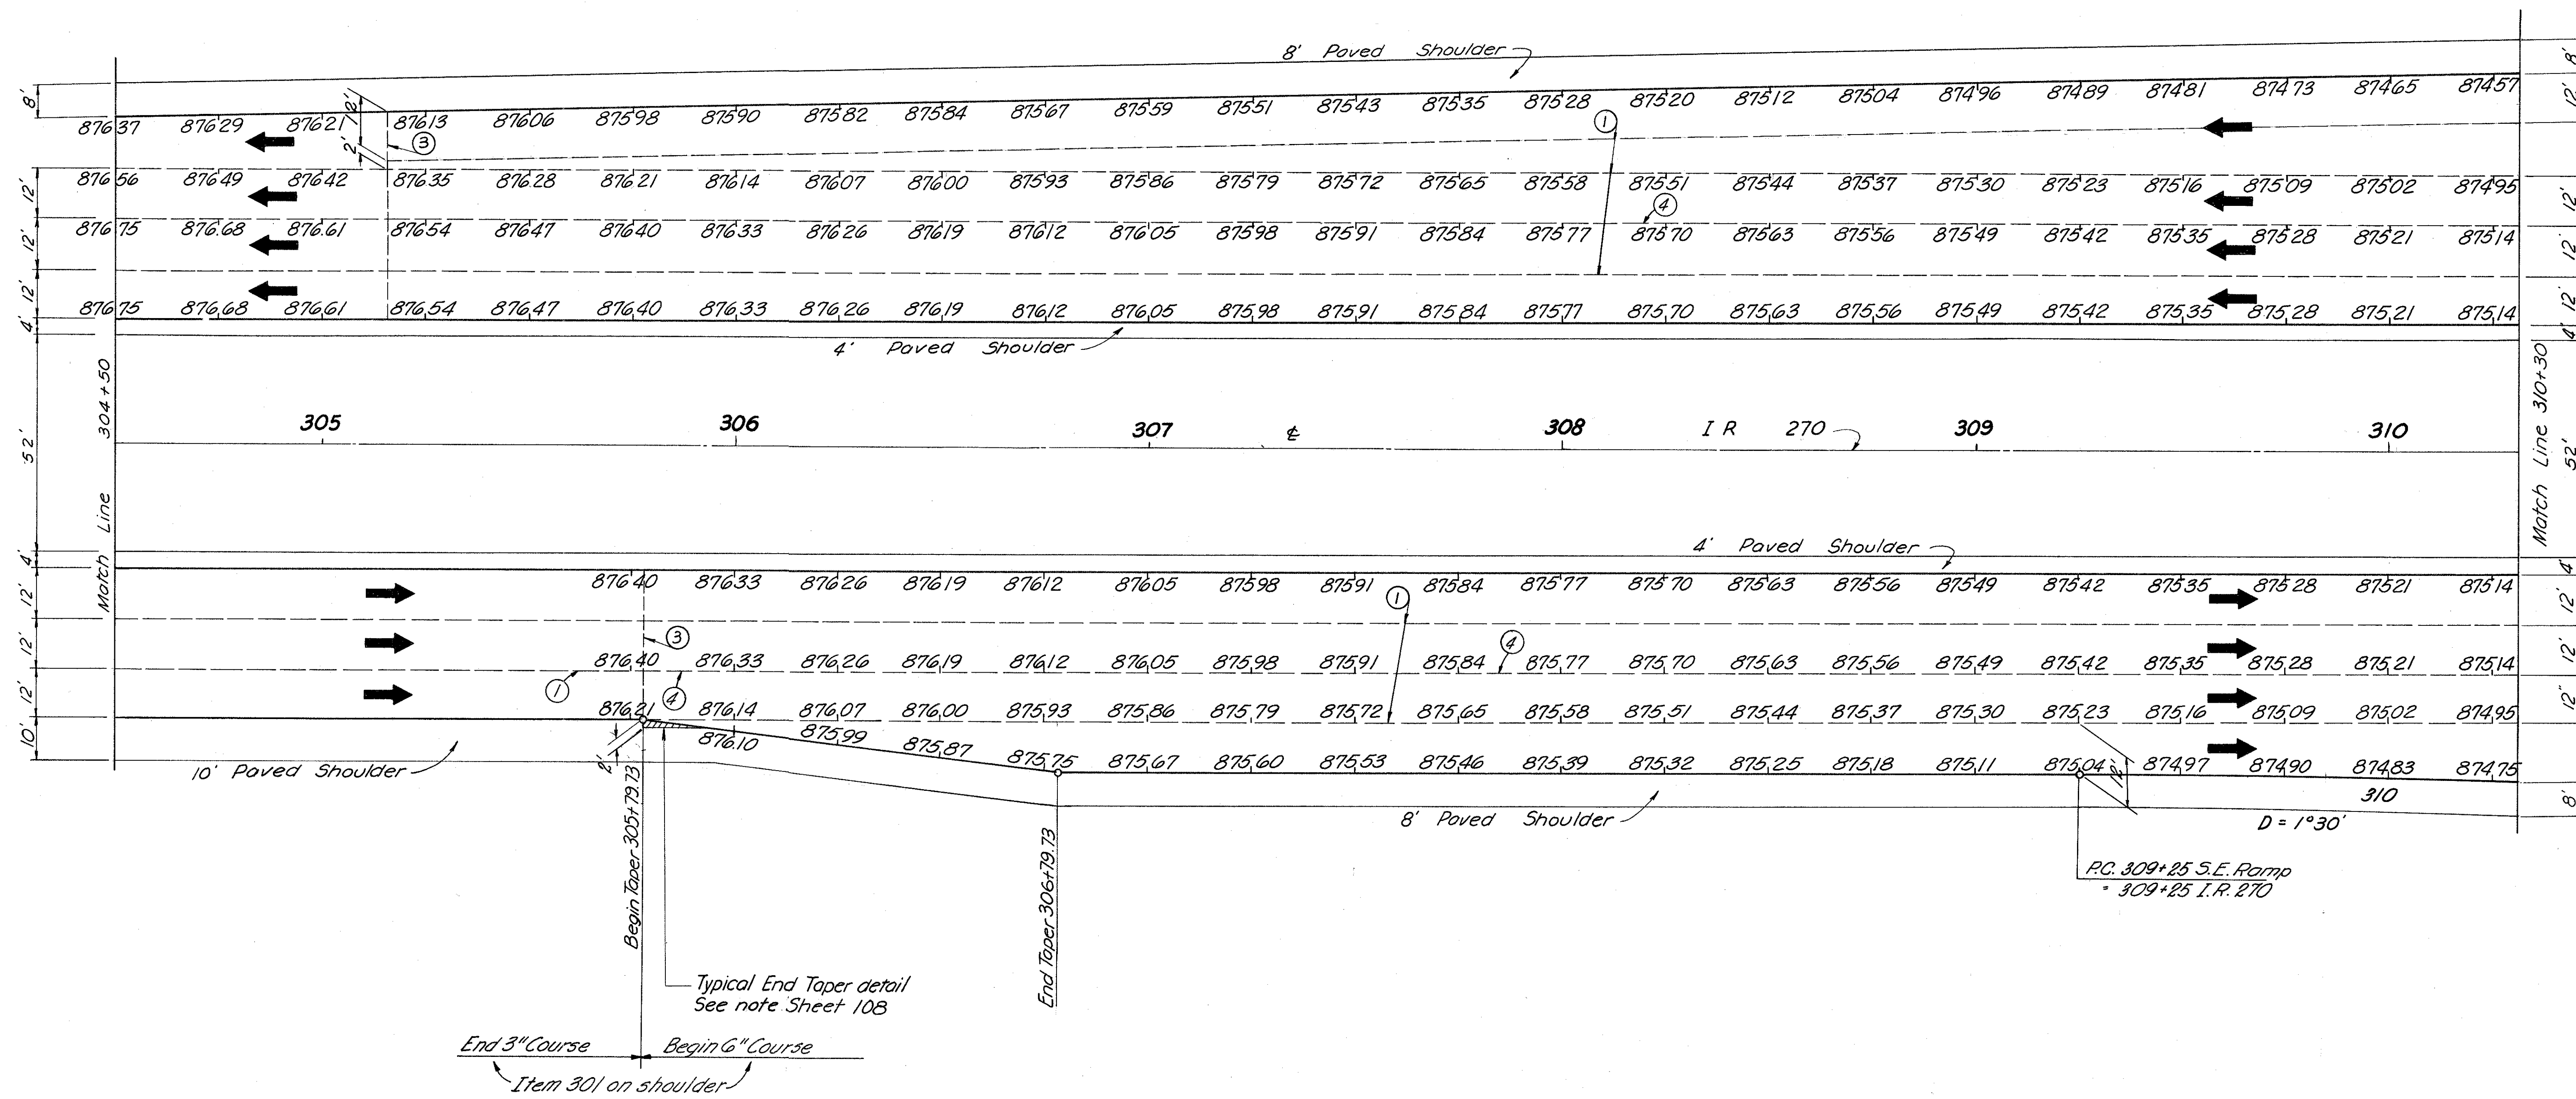 8' Paved Shoulder
876.37 876.29 876.21 876.13 876.06 875.98 875.90 875.82 875.84 875.67 875.59 875.51 875.43 875.35 875.28 875.20 875.12 875.04 874.96 874.89 874.81 874.73 874.65 874.57
8' 12' 2' 3 1 8' 12'
876.56 876.49 876.42 876.35 876.28 876.21 876.14 876.07 876.00 875.93 875.86 875.79 875.72 875.65 875.58 875.51 875.44 875.37 875.30 875.23 875.16 875.09 875.02 874.95
12' 4 12'
876.75 876.68 876.61 876.54 876.47 876.40 876.33 876.26 876.19 876.12 876.05 875.98 875.91 875.84 875.77 875.70 875.63 875.56 875.49 875.42 875.35 875.28 875.21 875.14
12' 12'
12' 12'
876.75 876.68 876.61 876.54 876.47 876.40 876.33 876.26 876.19 876.12 876.05 875.98 875.91 875.84 875.77 875.70 875.63 875.56 875.49 875.42 875.35 875.28 875.21 875.14
4' 4'
4' Paved Shoulder
Match Line 304+50
Match Line 310+30
52' 52'
305 306 307 ℄ 308 I R 270 309 310
4' Paved Shoulder
4' 4'
876.40 876.33 876.26 876.19 876.12 876.05 875.98 875.91 875.84 875.77 875.70 875.63 875.56 875.49 875.42 875.35 875.28 875.21 875.14
12' 1 12'
12' 3 4 12'
876.40 876.33 876.26 876.19 876.12 876.05 875.98 875.91 875.84 875.77 875.70 875.63 875.56 875.49 875.42 875.35 875.28 875.21 875.14
12' 1 4 12"
876.21 876.14 876.07 876.00 875.93 875.86 875.79 875.72 875.65 875.58 875.51 875.44 875.37 875.30 875.23 875.16 875.09 875.02 874.95
876.10 875.99 875.87 875.75 875.67 875.60 875.53 875.46 875.39 875.32 875.25 875.18 875.11 875.04 874.97 874.90 874.83 874.75
10' 2' 12' 8'
10' Paved Shoulder
310
8' Paved Shoulder
D = 1°30'
Begin Taper 305+79.73
End Taper 306+79.73
P.C. 309+25 S.E. Ramp
= 309+25 I.R. 270
Typical End Taper detail
See note Sheet 108
End 3" Course Begin 6" Course
Item 301 on shoulder